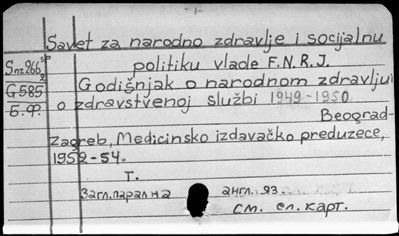 - 1 -
Savet za narodno zdravlje i socijalnu
politiku vlade F.N.R.J.
Godišnjak o narodnom zdravlju
o zdravstvenoj službi 1949-1950.
Beograd-
Zagreb, Medicinsko izdavačko preduzece,
1952-54.
т.
Загл. парал на англ. яз.
см. сл. карт.
G585
Б.Ф.